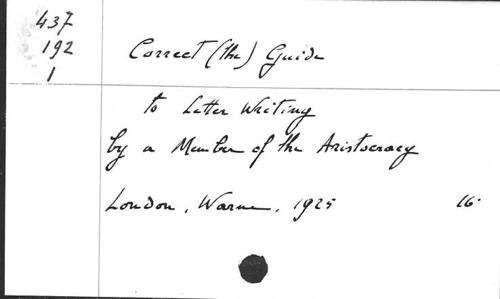 437
192
1
Correct (the) Guide
to Letter Writing
by a Member of the Aristocracy
London, Warne, 1925 16°